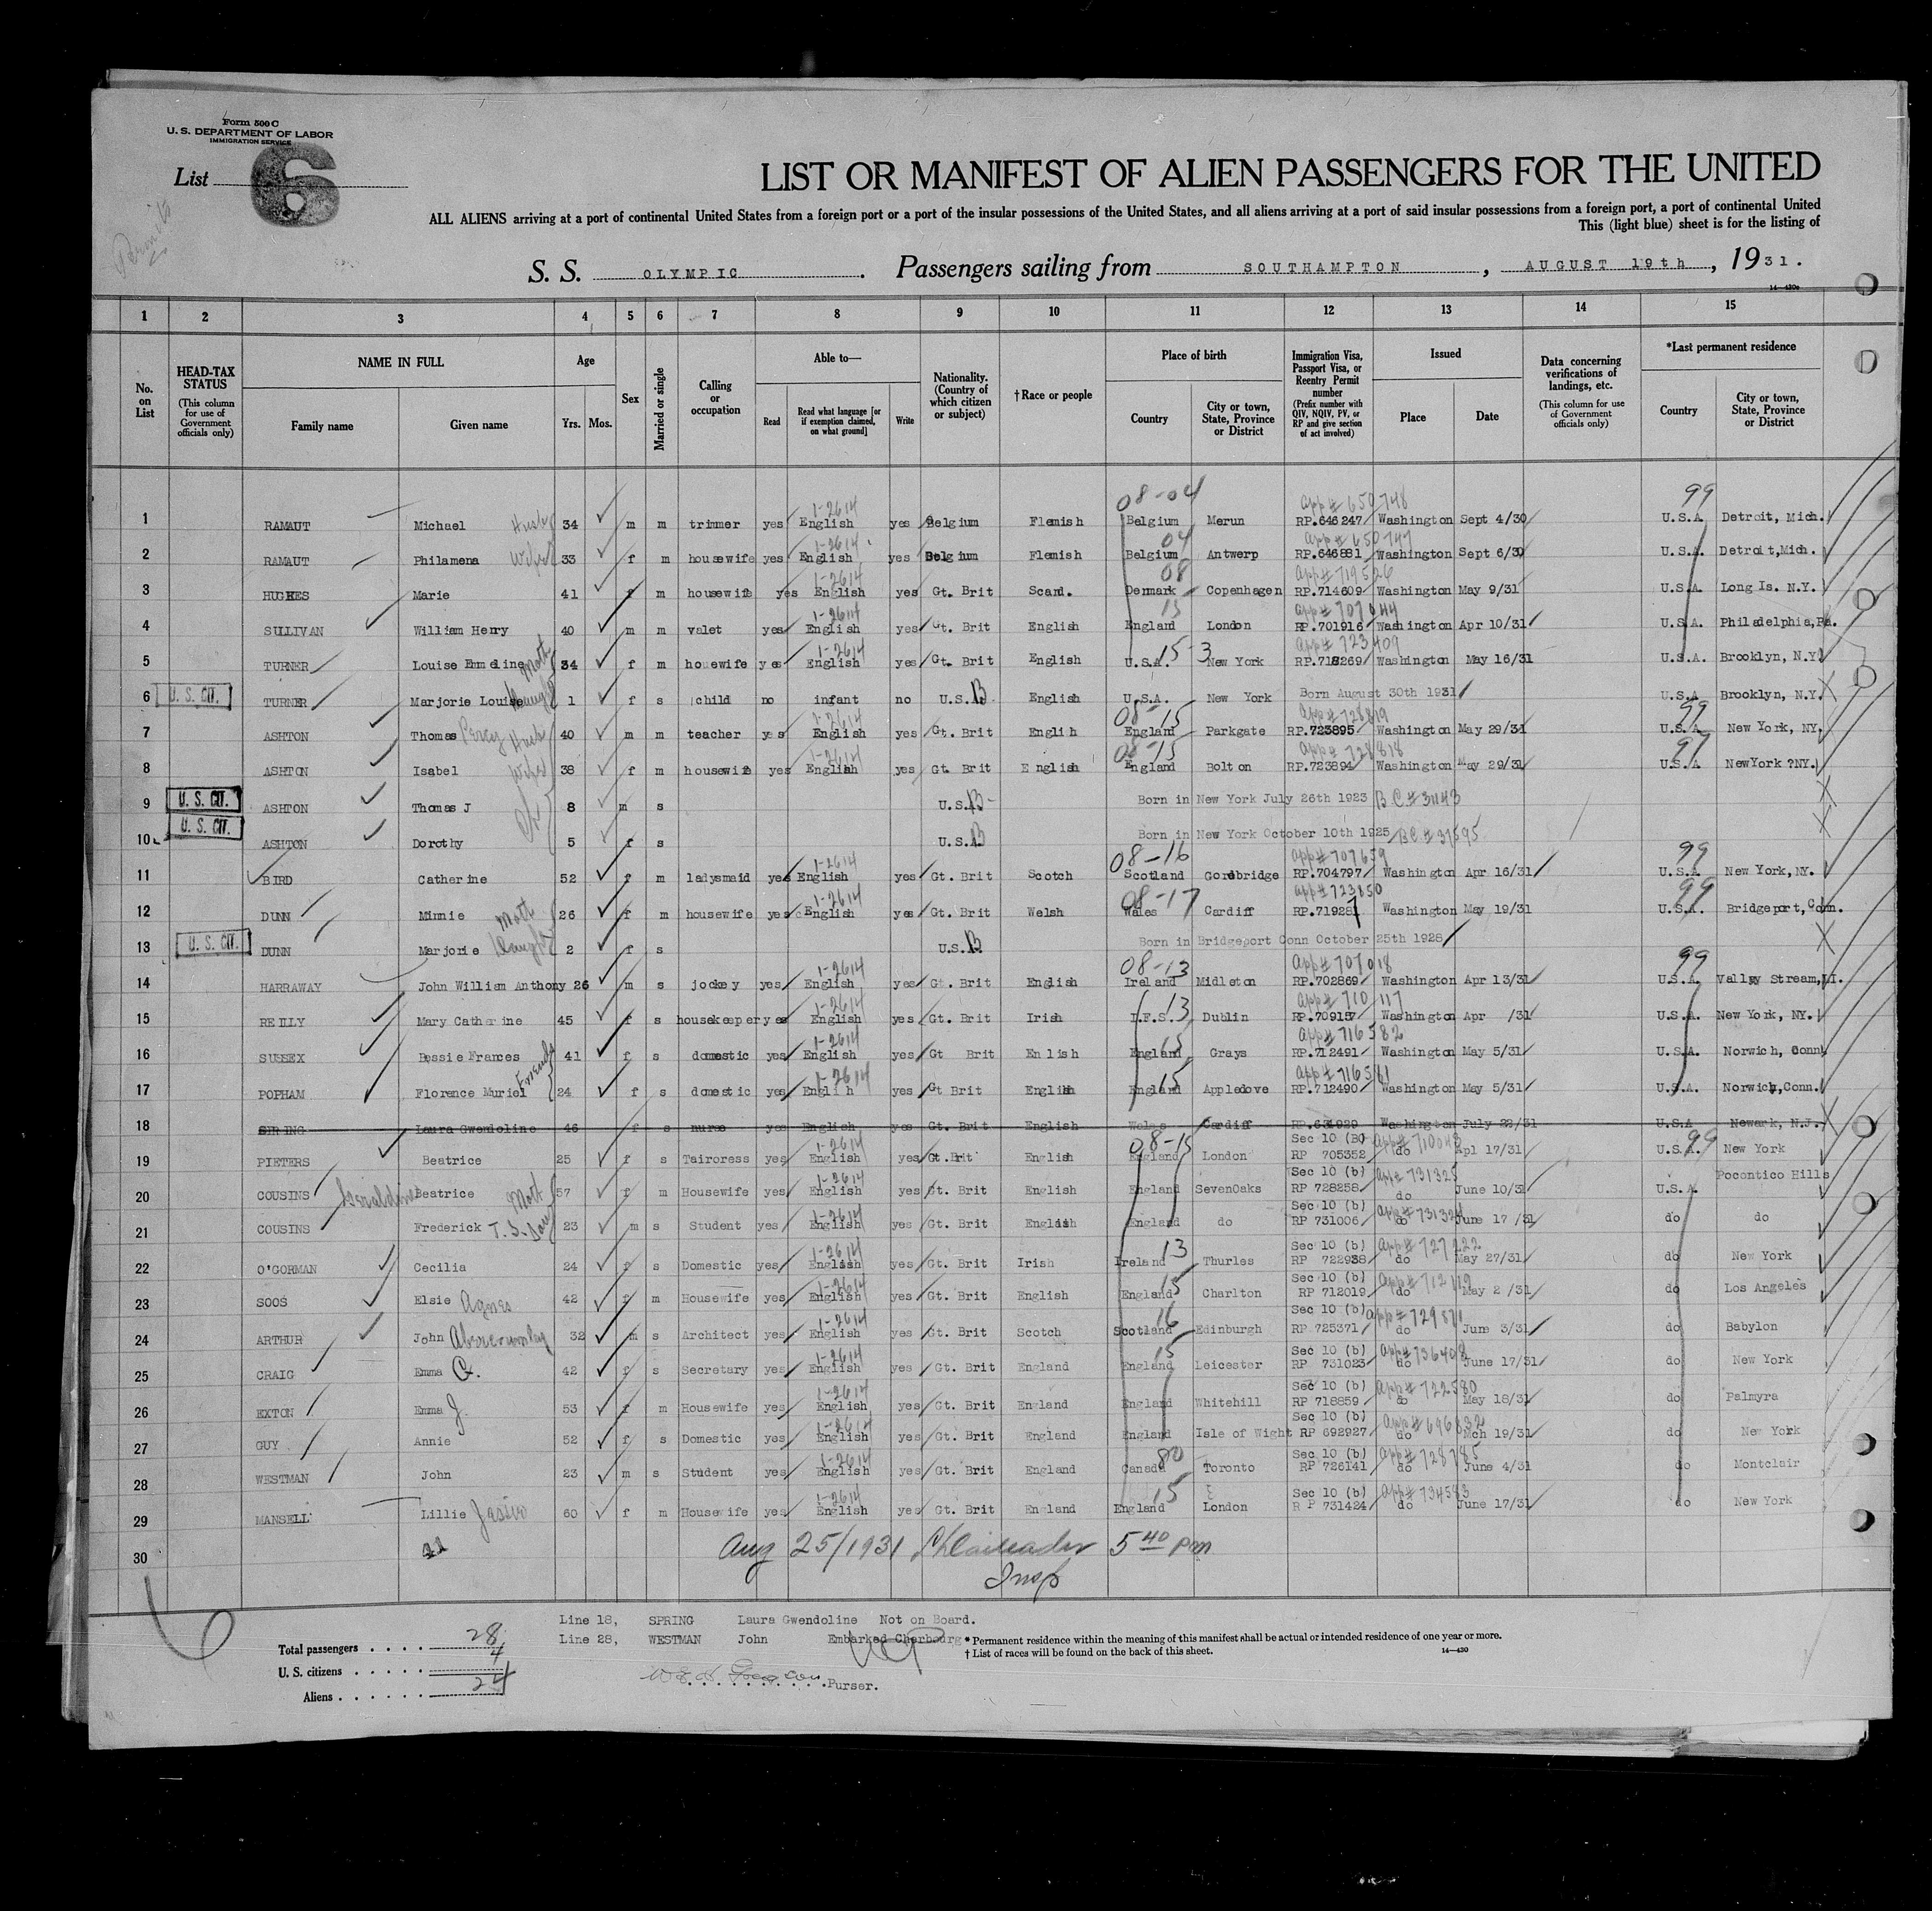 Form 500 C
U. S. DEPARTMENT OF LABOR
IMMIGRATION SERVICE
List 6
Permits
LIST OR MANIFEST OF ALIEN PASSENGERS FOR THE UNITED
ALL ALIENS arriving at a port of continental United States from a foreign port or a port of the insular possessions of the United States, and all aliens arriving at a port of said insular possessions from a foreign port, a port of continental United
This (light blue) sheet is for the listing of
S. S. OLYMPIC. Passengers sailing from SOUTHAMPTON, AUGUST 19th, 1931.
14—430c
1 2 3 4 5 6 7 8 9 10 11 12 13 14 15
No. on List
HEAD-TAX STATUS (This column for use of Government officials only)
NAME IN FULL Family name Given name
Age Yrs. Mos.
Sex
Married or single
Calling or occupation
Able to— Read Read what language [or if exemption claimed, on what ground] Write
Nationality. (Country of which citizen or subject)
†Race or people
Place of birth Country City or town, State, Province or District
Immigration Visa, Passport Visa, or Reentry Permit number (Prefix number with QIV, NQIV, PV, or RP and give section of act involved)
Issued Place Date
Data concerning verifications of landings, etc. (This column for use of Government officials only)
*Last permanent residence Country City or town, State, Province or District
1-2614 08-04 App# 650748 99
1 RAMAUT Michael Husb 34 m m trimmer yes English yes Belgium Flemish Belgium Merun RP.646247 Washington Sept 4/30 U.S.A. Detroit, Mich.
1-2614 04 App# 650747
2 RAMAUT Philamena Wife 33 f m housewife yes English yes Belgium Flemish Belgium Antwerp RP.646881 Washington Sept 6/30 U.S.A. Detroit,Mich.
1-2614 08 App# 719526
3 HUGHES Marie 41 f m housewife yes English yes Gt. Brit Scand. Denmark Copenhagen RP.714609 Washington May 9/31 U.S.A. Long Is. N.Y.
1-2614 15 App# 707044
4 SULLIVAN William Henry 40 m m valet yes English yes Gt. Brit English England London RP.701916 Washington Apr 10/31 U.S.A. Philadelphia,Pa.
1-2614 15-3 App# 723409
5 TURNER Louise Emmeline Moth 34 f m houewife yes English yes Gt. Brit English U.S.A. New York RP.718269 Washington May 16/31 U.S.A. Brooklyn, N.Y.
6 U. S. CIT. TURNER Marjorie Louise Daugh 1 f s child no infant no U.S.B English U.S.A. New York Born August 30th 1931 U.S.A Brooklyn, N.Y.
1-2614 08-15 App# 728819 99
7 ASHTON Thomas Percy Husb 40 m m teacher yes English yes Gt. Brit Englih England Parkgate RP.723895 Washington May 29/31 U.S.A. New York, NY.
1-2614 08-15 App# 728818 99
8 ASHTON Isabel Wife 38 f m housewife yes English yes Gt. Brit English England Bolton RP.723894 Washington May 29/31 U.S.A NewYork ?NY.
9 U. S. CIT. ASHTON Thomas J Ch 8 m s U.S.B- Born in New York July 26th 1923 B.C.# 31143
10 U. S. CIT. ASHTON Dorothy 5 f s U.S.B Born in New York October 10th 1925 B.C.# 37595
1-2614 08-16 App# 707659 99
11 BIRD Catherine 52 f m ladysmaid yes English yes Gt. Brit Scotch Scotland Gordbridge RP.704797 Washington Apr 16/31 U.S.A. New York, NY.
1-2614 08-17 App# 723850 99
12 DUNN Minnie Moth 26 f m housewife yes English yes Gt. Brit Welsh Wales Cardiff RP.719281 Washington May 19/31 U.S.A. Bridgeport, Conn.
13 U. S. CIT. DUNN Marjorie Daugh 2 f s U.S.B Born in Bridgeport Conn October 25th 1928
1-2614 08-13 App# 707018 99
14 HARRAWAY John William Anthony 26 m s jockey yes English yes Gt. Brit English Ireland Midleton RP.702869 Washington Apr 13/31 U.S.A. Valley Stream,LI.
1-2614 13 App# 710117
15 REILLY Mary Catherine 45 f s housekeeper yes English yes Gt. Brit Irish I.F.S. Dublin RP.709157 Washington Apr /31 U.S.A. New York, NY.
1-2614 15 App# 716582
16 SUSSEX Bessie Frances Friends 41 f s domestic yes English yes Gt Brit En lish England Grays RP.712491 Washington May 5/31 U.S.A. Norwich, Conn.
1-2614 15 App# 716581
17 POPHAM Florence Muriel 24 f s domestic yes Engli h yes Gt Brit English England Appledove RP.712490 Washington May 5/31 U.S.A. Norwich,Conn.
18 SPRING Laura Gwendoline 46 f s nurse yes English yes Gt. Brit English Wales Cardiff RP.631929 Washington July 28/31 U.S.A Newark, N.J.
1-2614 08-15 Sec 10 (B) App# 710048 99
19 PIETERS Beatrice 25 f s Tairoress yes English yes Gt.Brit English England London RP 705352 do Apl 17/31 U.S.A. New York
1-2614 Sec 10 (b) App# 731325
20 COUSINS Geraldine Beatrice Moth 57 f m Housewife yes English yes Gt. Brit English England SevenOaks RP 728258 do June 10/31 U.S.A. Pocontico Hills
1-2614 Sec 10 (b) App# 731324
21 COUSINS Frederick T. S. Son 23 m s Student yes English yes Gt. Brit English England do RP 731006 do June 17 /31 do do
1-2614 13 Sec 10 (b) App# 727222
22 O'GORMAN Cecilia 24 f s Domestic yes English yes Gt. Brit Irish Ireland Thurles RP 722938 do May 27/31 do New York
1-2614 15 Sec 10 (b) App# 712119
23 SOOS Elsie Agnes 42 f m Housewife yes English yes Gt. Brit English England Charlton RP 712019 do May 2 /31 do Los Angeles
1-2614 16 Sec 10 (b) App# 729871
24 ARTHUR John Abercromby 32 m s Architect yes English yes Gt. Brit Scotch Scotland Edinburgh RP 725371 do June 3/31 do Babylon
1-2614 15 Sec 10 (b) App# 736408
25 CRAIG Emma C. 42 f s Secretary yes English yes Gt. Brit England England Leicester RP 731023 do June 17/31 do New York
1-2614 Sec 10 (b) App# 722580
26 EXTON Emma J. 53 f m Housewife yes English yes Gt. Brit England England Whitehill RP 718859 do May 18/31 do Palmyra
1-2614 Sec 10 (b) App# 696832
27 GUY Annie 52 f s Domestic yes English yes Gt. Brit England England Isle of Wight RP 692927 do Mch 19/31 do New York
1-2614 80 Sec 10 (b) App# 728785
28 WESTMAN John 23 m s Student yes English yes Gt. Brit England Canada Toronto RP 726141 do June 4/31 do Montclair
1-2614 15 Sec 10 (b) App# 734583
29 MANSELL Lillie Jessie 60 f m Housewife yes English yes Gt. Brit England England London R P 731424 do June 17/31 do New York
30 Aug 25/1931 5 40 pm
Insp
6
Line 18, SPRING Laura Gwendoline Not on Board.
Line 28, WESTMAN John Embarked Cherbourg
* Permanent residence within the meaning of this manifest shall be actual or intended residence of one year or more.
† List of races will be found on the back of this sheet.
14—430
Total passengers . . . . 28
U. S. citizens . . . . . 4
Aliens . . . . . . 24
Purser.